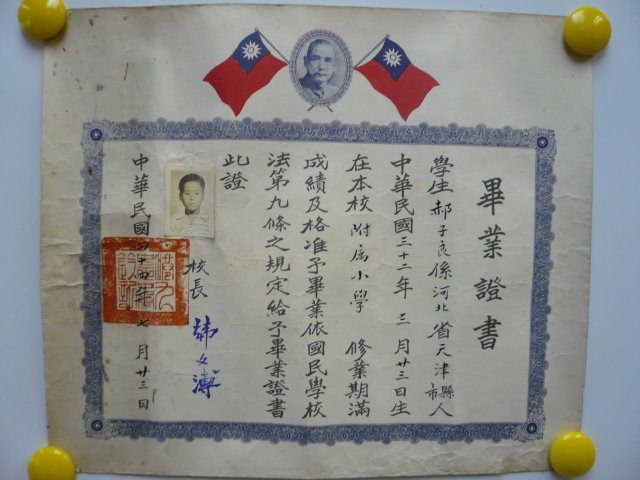 畢業證書
學生郝子良係河北省天津縣市人
中華民國三十二年三月廿三日生
在本校附属小學 修業期滿
成績及格准予畢業依國民學校
法第九條之規定給予畢業證書
此證
校長
中華民國四十四年七月廿三日